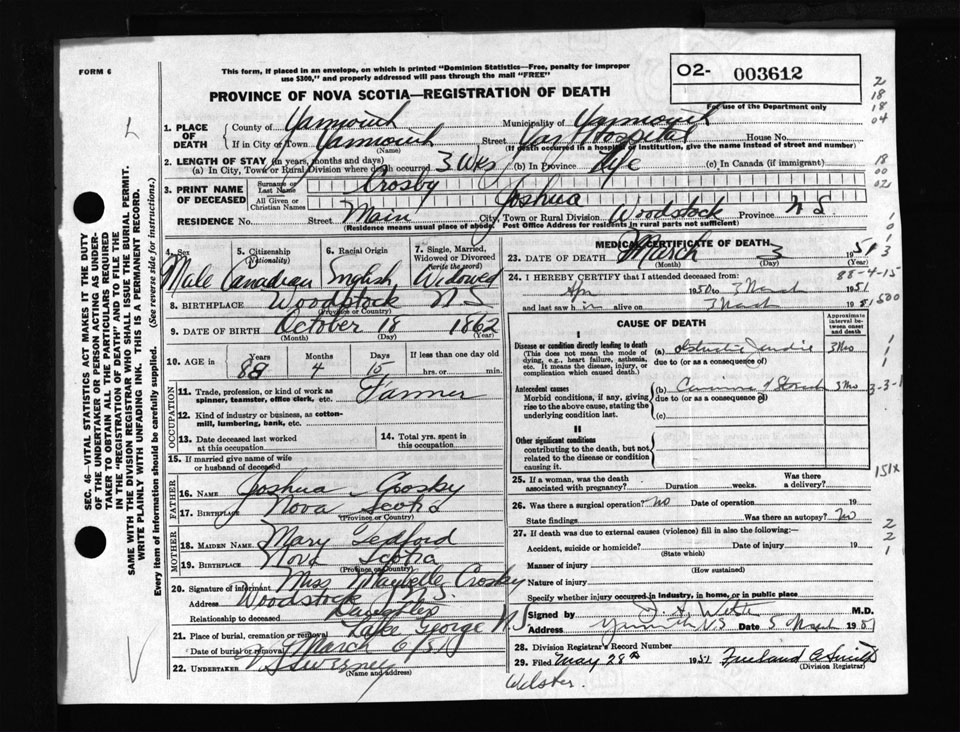 FORM 6
This form, if placed in an envelope, on which is printed "Dominion Statistics—Free, penalty for improper
use $300," and properly addressed will pass through the mail "FREE"
PROVINCE OF NOVA SCOTIA—REGISTRATION OF DEATH
O2- 003612
For use of the Department only
2
18
18
04
18
00
02
1. PLACE OF DEATH
County of Yarmouth Municipality of Yarmouth
If in City or Town Yarmouth Street Yar Hospital House No.
(Name) (If death occurred in a hospital or institution, give the name instead of street and number)
2. LENGTH OF STAY (in years, months and days)
(a) In City, Town or Rural Division where death occurred 3 Wks (b) In Province Life (c) In Canada (if immigrant)
3. PRINT NAME OF DECEASED
Surname or Last Name Crosby
All Given or Christian Names Joshua
RESIDENCE No. Street Main City, Town or Rural Division Woodstock Province N S
(Residence means usual place of abode. Post Office Address for residents in rural parts not sufficient)
4. Sex Male
5. Citizenship (Nationality) Canadian
6. Racial Origin English
7. Single, Married, Widowed or Divorced (write the word) Widowed
8. BIRTHPLACE Woodstock N S
(Province or Country)
9. DATE OF BIRTH October 18 1862
(Month) (Day) (Year)
10. AGE in Years 88 Months 4 Days 15 If less than one day old
hrs. or min.
OCCUPATION
11. Trade, profession, or kind of work as
spinner, teamster, office clerk, etc. Farmer
12. Kind of industry or business, as cotton-
mill, lumbering, bank, etc.
13. Date deceased last worked
at this occupation
14. Total yrs. spent in
this occupation
15. If married give name of wife
or husband of deceased
FATHER
16. NAME Joshua Crosby
17. BIRTHPLACE Nova Scotia
(Province or Country)
MOTHER
18. MAIDEN NAME Mary Tedford
19. BIRTHPLACE Nova Scotia
(Province or Country)
20. Signature of informant Miss Maybelle Crosby
Address Woodstock
Relationship to deceased Daughter
21. Place of burial, cremation or removal Lake George N S
Date of burial or removal March 6/51
22. UNDERTAKER V S Sweeney
(Name and address)
MEDICAL CERTIFICATE OF DEATH
23. DATE OF DEATH March 3 1951
(Month) (Day) (Year)
88-4-15
24. I HEREBY CERTIFY that I attended deceased from:
Apr 1950 to 3 March 1951
and last saw him alive on 3 March 1951
1500
CAUSE OF DEATH
Approximate interval between onset and death
I
Disease or condition directly leading to death
(This does not mean the mode of dying, e.g., heart failure, asthenia, etc. It means the disease, injury, or complication which caused death.)
(a) Obstructive Jaundice 3 Mo
due to (or as a consequence of)
Antecedent causes
Morbid conditions, if any, giving rise to the above cause, stating the underlying condition last.
(b) Carcinoma of Stomach 3 Mo
due to (or as a consequence of)
(c)
3-3-1
II
Other significant conditions
contributing to the death, but not related to the disease or condition causing it.
151x
25. If a woman, was the death
associated with pregnancy? Duration weeks. Was there a delivery?
26. Was there a surgical operation? No Date of operation 19
State findings Was there an autopsy? No
27. If death was due to external causes (violence) fill in also the following:—
Accident, suicide or homicide? Date of injury 19
(State which)
Manner of injury
(How sustained)
Nature of injury
Specify whether injury occurred in Industry, in home, or in public place
Signed by M.D.
Address Yarmouth N.S Date 5 March 1951
28. Division Registrar's Record Number
29. Filed May 28th 1951 Freeland C Smith
(Division Registrar)
Webster.
2
2
1
SEC. 46—VITAL STATISTICS ACT MAKES IT THE DUTY
OF THE UNDERTAKER OR PERSON ACTING AS UNDER-
TAKER TO OBTAIN ALL THE PARTICULARS REQUIRED
IN THE "REGISTRATION OF DEATH" AND TO FILE THE
SAME WITH THE DIVISION REGISTRAR WHO SHALL ISSUE THE BURIAL PERMIT.
WRITE PLAINLY WITH UNFADING INK. THIS IS A PERMANENT RECORD.
Every item of information should be carefully supplied. (See reverse side for instructions.)